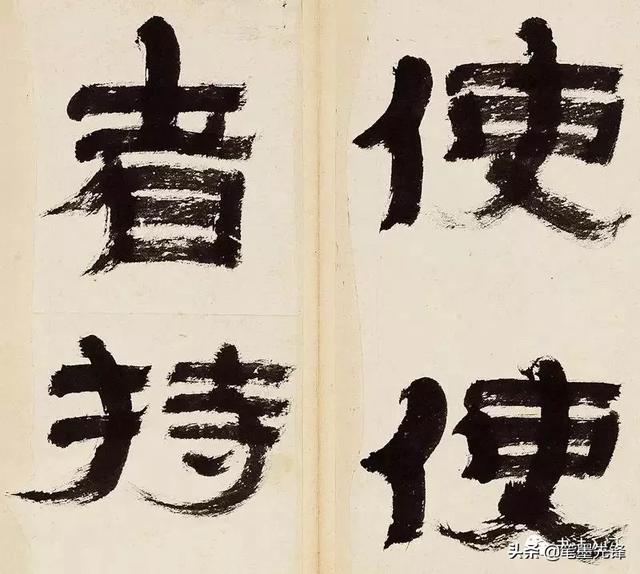 使使
者持
头条 @笔墨先锋